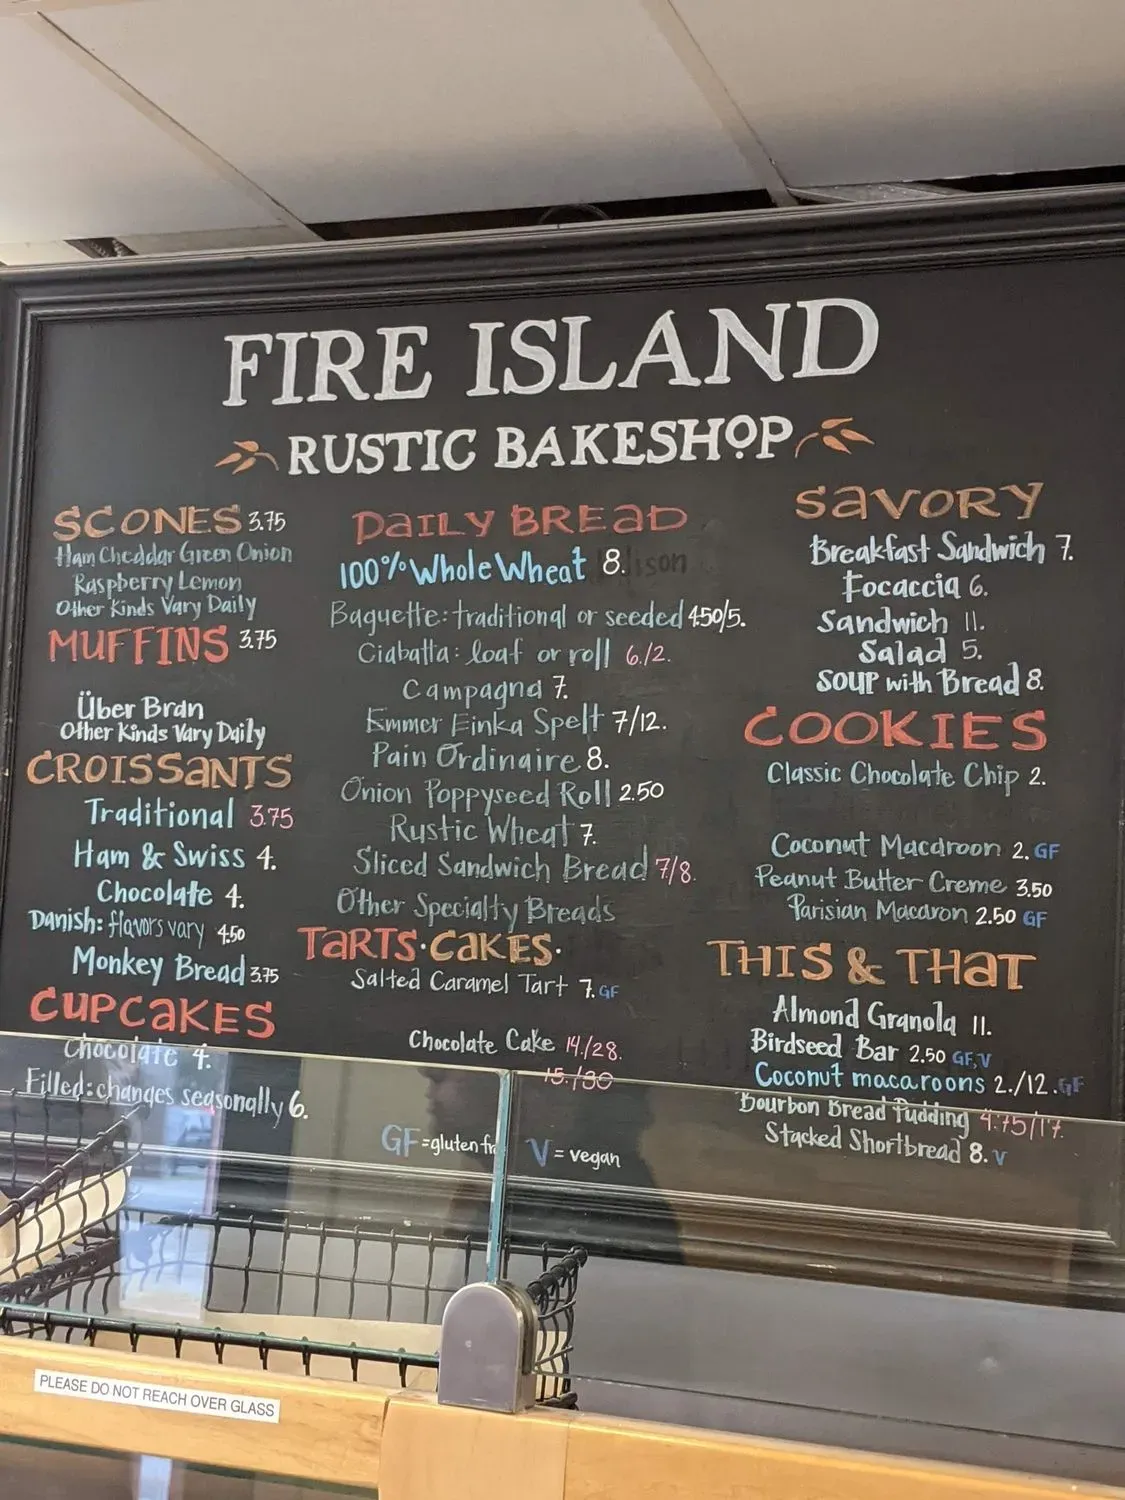 FIRE ISLAND
RUSTIC BAKESHOP
SCONES 3.75
Ham Cheddar Green Onion
Raspberry Lemon
Other Kinds Vary Daily
MUFFINS 3.75
Über Bran
Other Kinds Vary Daily
CROISSANTS
Traditional 3.75
Ham & Swiss 4.
Chocolate 4.
Danish: flavors vary 4.50
Monkey Bread 3.75
CUPCAKES
Chocolate 4.
Filled: changes seasonally 6.
DAILY BREAD
100% Whole Wheat 8.
Baguette: traditional or seeded 4.50/5.
Ciabatta: loaf or roll 6./2.
Campagna 7.
Emmer Einka Spelt 7/12.
Pain Ordinaire 8.
Onion Poppyseed Roll 2.50
Rustic Wheat 7.
Sliced Sandwich Bread 7/8.
Other Specialty Breads
TARTS·CAKES·
Salted Caramel Tart 7. GF
Chocolate Cake 14./28.
15./30
GF = gluten fr
V = vegan
SAVORY
Breakfast Sandwich 7.
Focaccia 6.
Sandwich 11.
Salad 5.
SOUP with Bread 8.
COOKIES
Classic Chocolate Chip 2.
Coconut Macaroon 2. GF
Peanut Butter Creme 3.50
Parisian Macaron 2.50 GF
THIS & THAT
Almond Granola 11.
Birdseed Bar 2.50 GF,V
Coconut macaroons 2./12. GF
Bourbon Bread Pudding 4.75/17.
Stacked Shortbread 8. V
PLEASE DO NOT REACH OVER GLASS